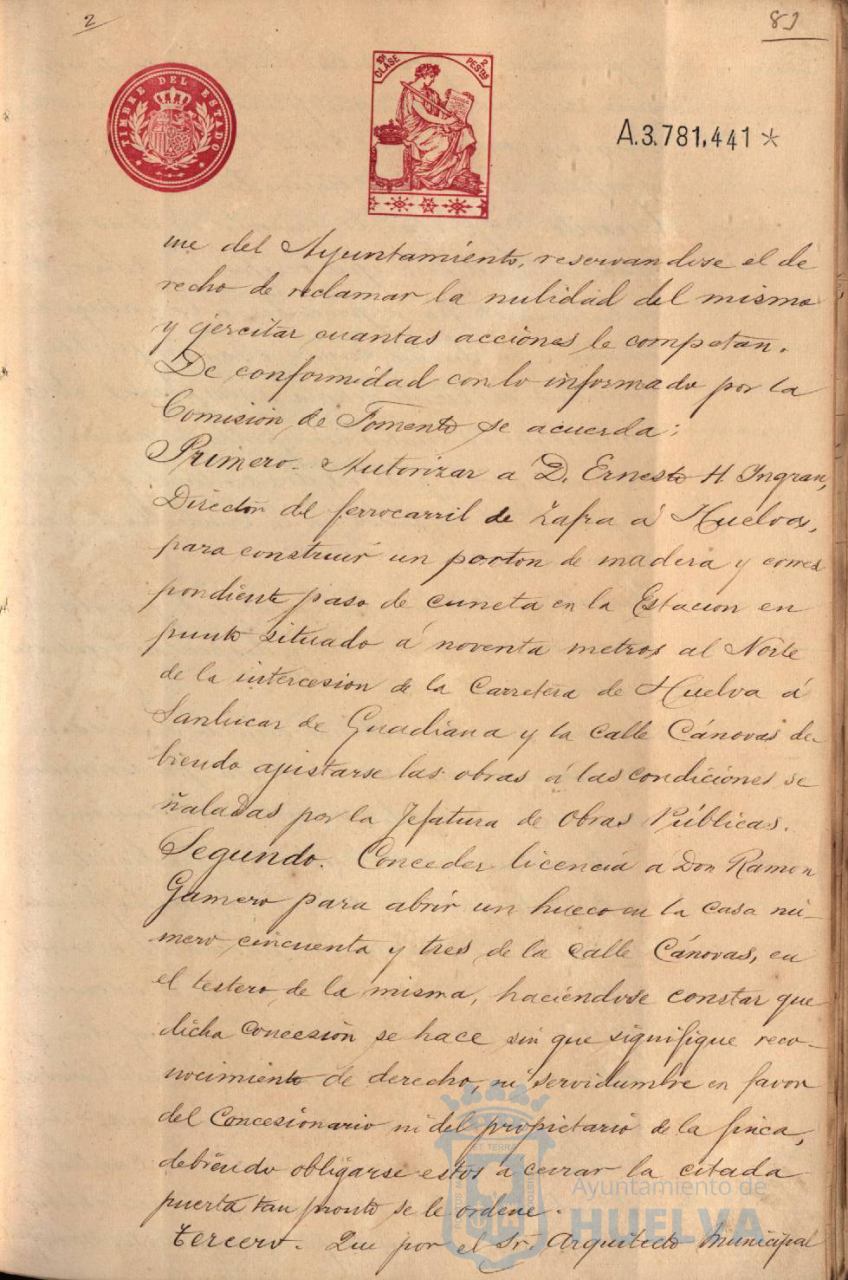 2
89
TIMBRE DEL ESTADO
10ª CLASE
2 PESTAS
A.3.781,441*
me del Ayuntamiento, reservandose el de
recho de reclamar la nulidad del mismo
y ejercitar cuantas acciones le competan.
De conformidad con lo informado por la
Comisión de Fomento se acuerda:
Primero. Autorizar a D. Ernesto H. Ingran,
Director del ferrocarril de Zafra á Huelva,
para construir un porton de madera y corres
pondiente paso de cuneta en la Estacion en
punto situado á noventa metros al Norte
de la intercesion de la Carretera de Huelva á
Sanlucar de Guadiana y la calle Cánovas de-
biendo ajustarse las obras á las condiciones se
ñaladas por la Jefatura de Obras Públicas.
Segundo. Conceder licencia á Don Ramon
Gamero para abrir un hueco en la casa nú-
mero cincuenta y tres de la calle Cánovas, en
el testero de la misma, haciéndose constar que
dicha Concesión se hace sin que signifique reco-
nocimiento de derecho, ni servidumbre en favor
del Concesionario ni del propietario de la finca,
debiendo obligarse estos a cerrar la citada
puerta tan pronto se le ordene.
Tercero. Que por el Sr. Arquitecto Municipal
Ayuntamiento de
HUELVA